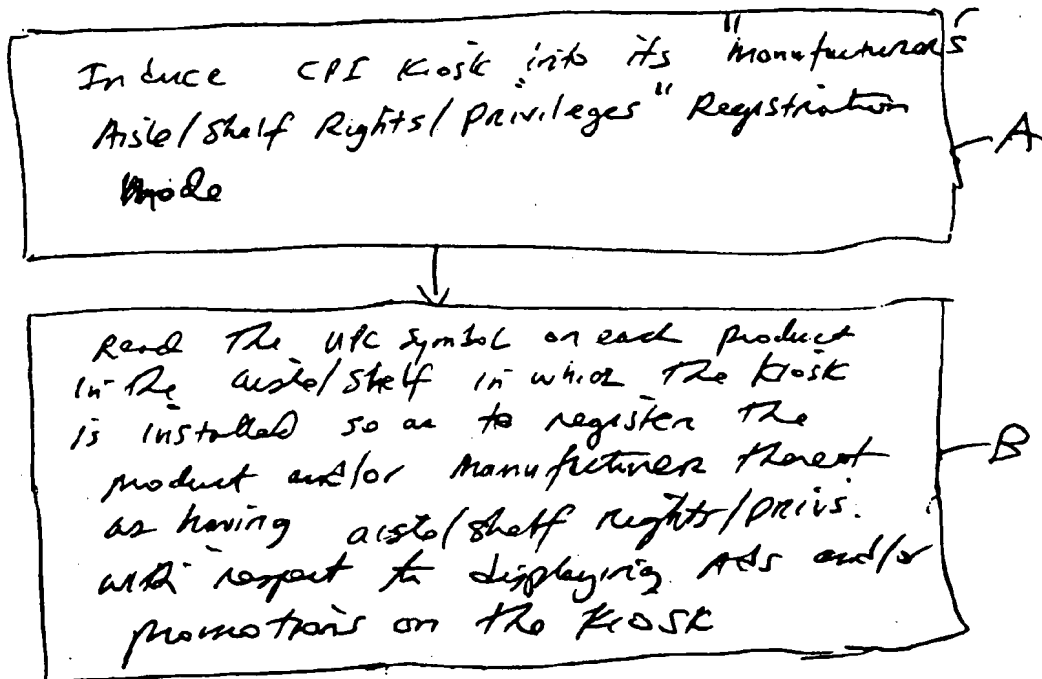 Induce CPI Kiosk into its "Manufacturer's
Aisle/Shelf Rights/Privileges" Registration
Mode
A
Read The UPC symbol on each product
in The aisle/shelf in which The Kiosk
is installed so as to register The
product and/or Manufacturer thereof
as having aisle/shelf rights/privs.
with respect to displaying Ads and/or
promotions on the Kiosk
B